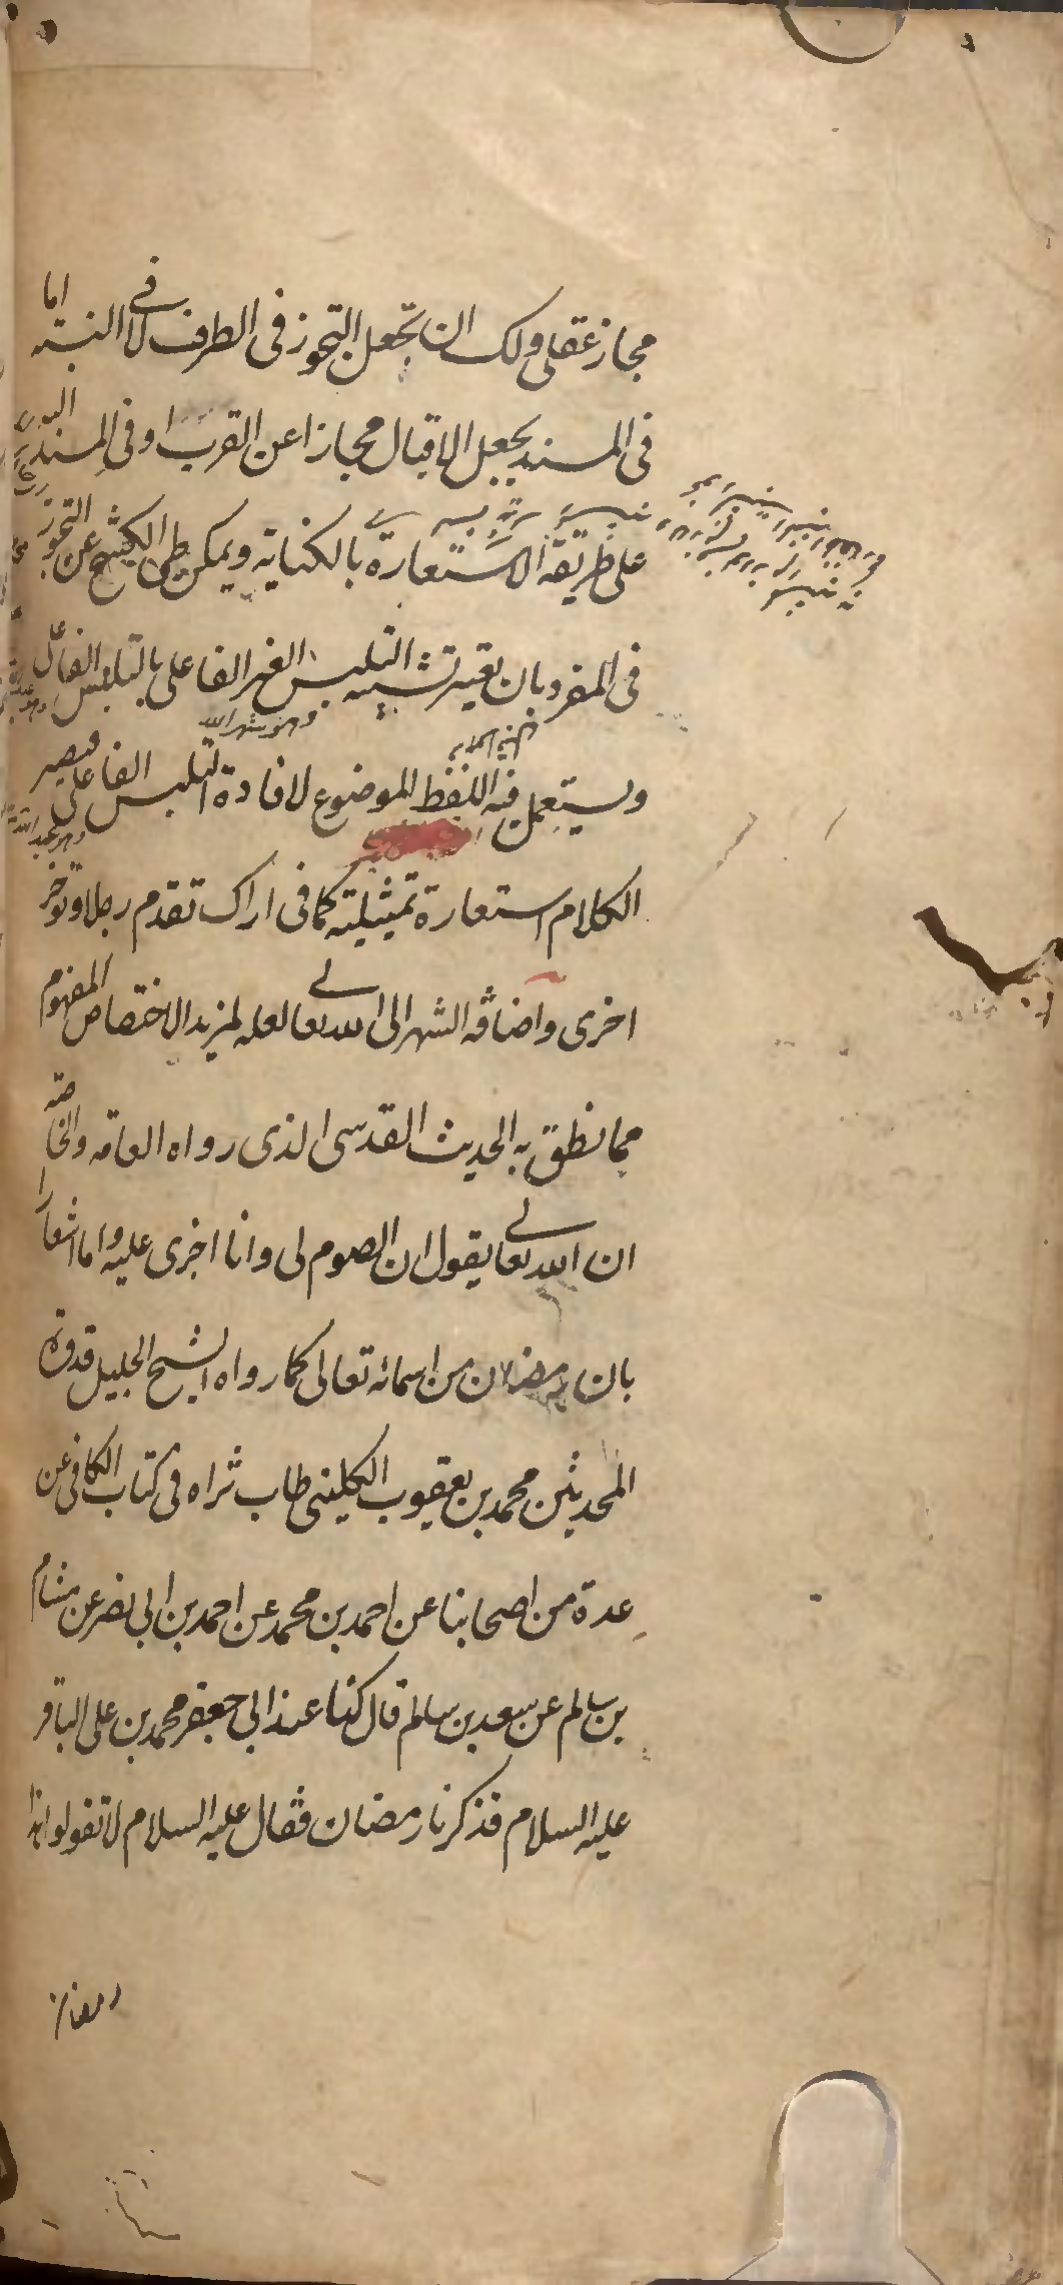 مجاز عقلى ولك ان تجعل التجوز فى الطرف لا فى النسبة اما
فى المسند بجعل الاقبال مجازا عن القرب او فى المسند اليه
على طريقة الاستعارة بالكناية ويمكن طى الكشح عن التجوز
فى المفرد بان تشبيه التلبس الغير الفاعلى بالتلبس الفاعلى
وهو شهر الله
ويستعمل فيه اللفظ الموضوع لافادة التلبس الفاعلى فيصير
الكلام استعارة تمثيلية كما فى اراك تقدم رجلا وتؤخر
اخرى واضافة الشهر الى الله تعالى لعله لمزيد الاختصاص المفهوم
مما نطق به الحديث القدسى الذى رواه العامة والخاصة
ان الله تعالى يقول ان الصوم لى وانا اجزى عليه واما اشعارا
بان رمضان من اسمائه تعالى كما رواه الشيخ الجليل قدوة
المحدثين محمد بن يعقوب الكلينى طاب ثراه فى كتاب الكافى عن
عدة من اصحابنا عن احمد بن محمد عن احمد بن ابى نصر عن هشام
بن سالم عن سعد بن سالم قال كنا عند ابى جعفر محمد بن على الباقر
عليه السلام فذكرنا رمضان فقال عليه السلام لا تقولوا هذا
رمضان